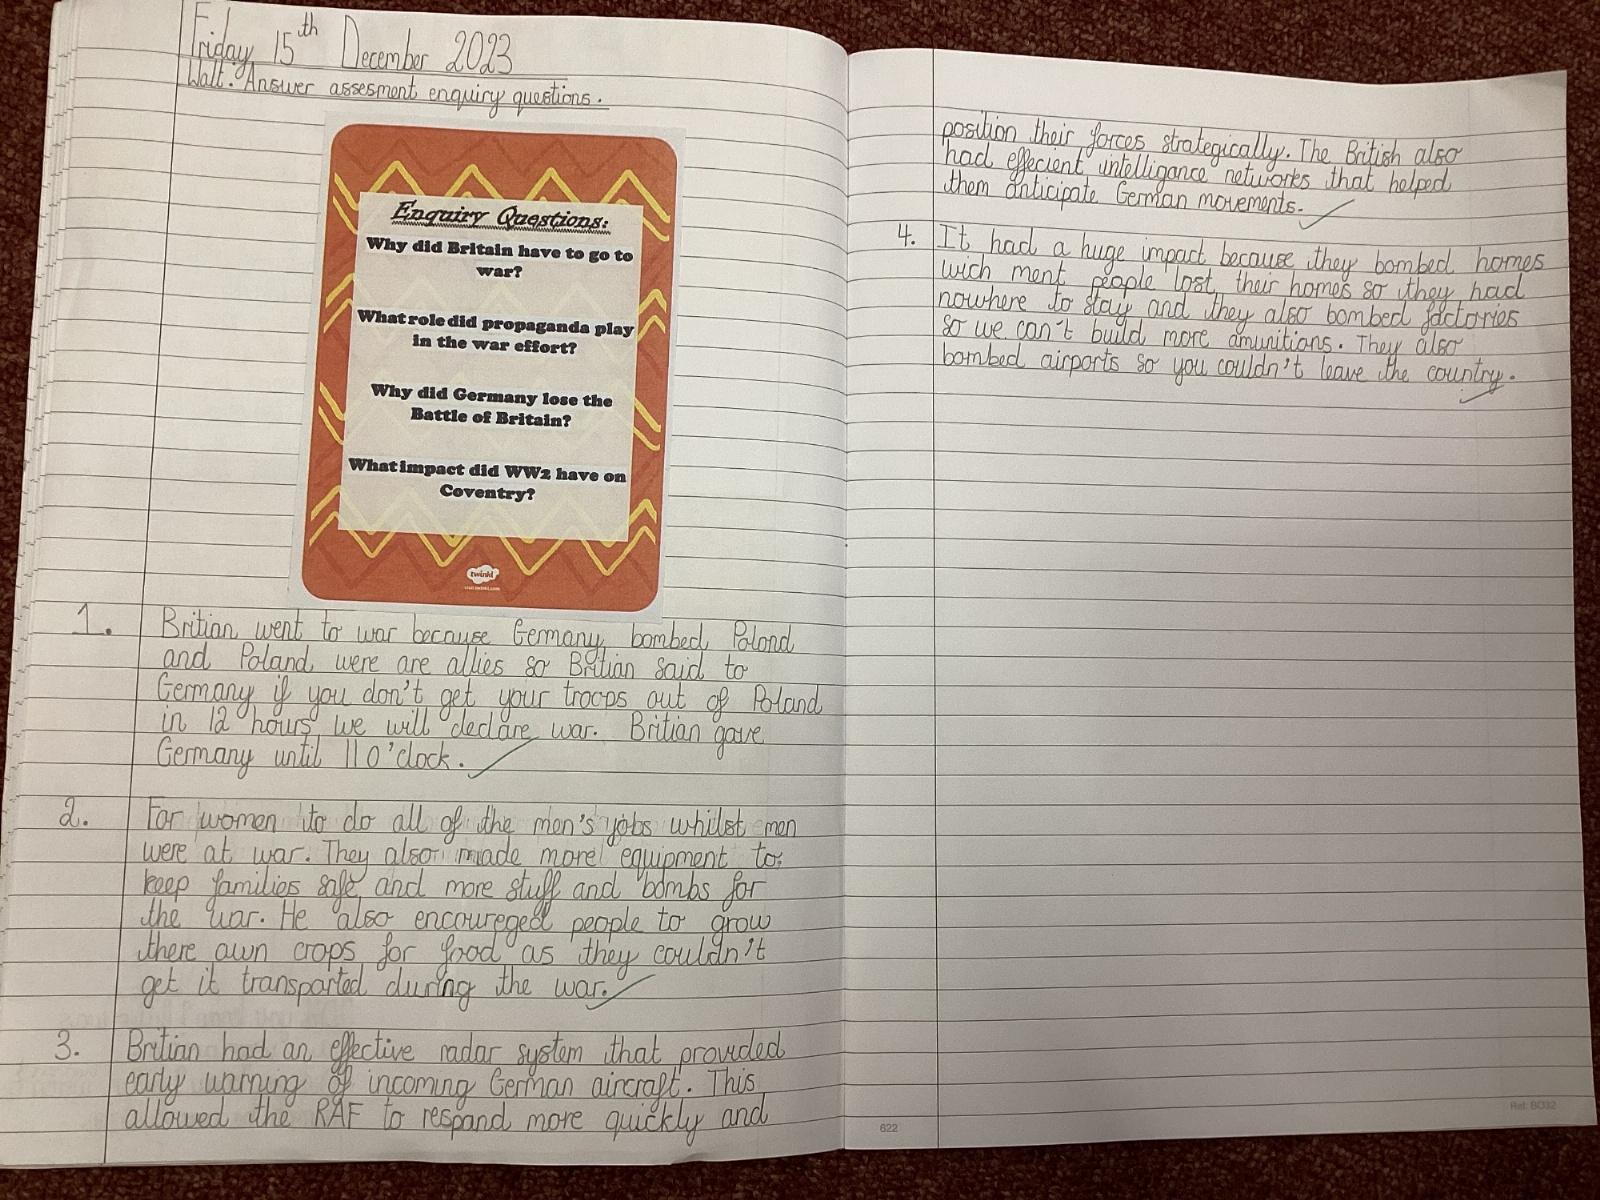 Friday 15th December 2023
Walt: Answer assesment enquiry questions.
Enquiry Questions:
Why did Britain have to go to
war?
What role did propaganda play
in the war effort?
Why did Germany lose the
Battle of Britain?
What impact did WW2 have on
Coventry?
twinkl
1. Britian went to war because Germany bombed Poland
and Poland were are allies so Britian said to
Germany if you don't get your troops out of Poland
in 12 hours we will declare war. Britian gave
Germany until 11 O'clock.
2. For women to do all of the men's jobs whilst men
were at war. They also made more equipment to
keep families safe and more stuff and bombs for
the war. He also encoureged people to grow
there own crops for food as they couldn't
get it transported during the war.
3. Britian had an effective radar system that provided
early warning of incoming German aircraft. This
allowed the RAF to respond more quickly and
position their forces strategically. The British also
had effecient intelligance networks that helped
them anticipate German movements.
4. It had a huge impact because they bombed homes
wich ment people lost their homes so they had
nowhere to stay and they also bombed factories
so we can't build more amunitions. They also
bombed airports so you couldn't leave the country.
622
Ref: BO32